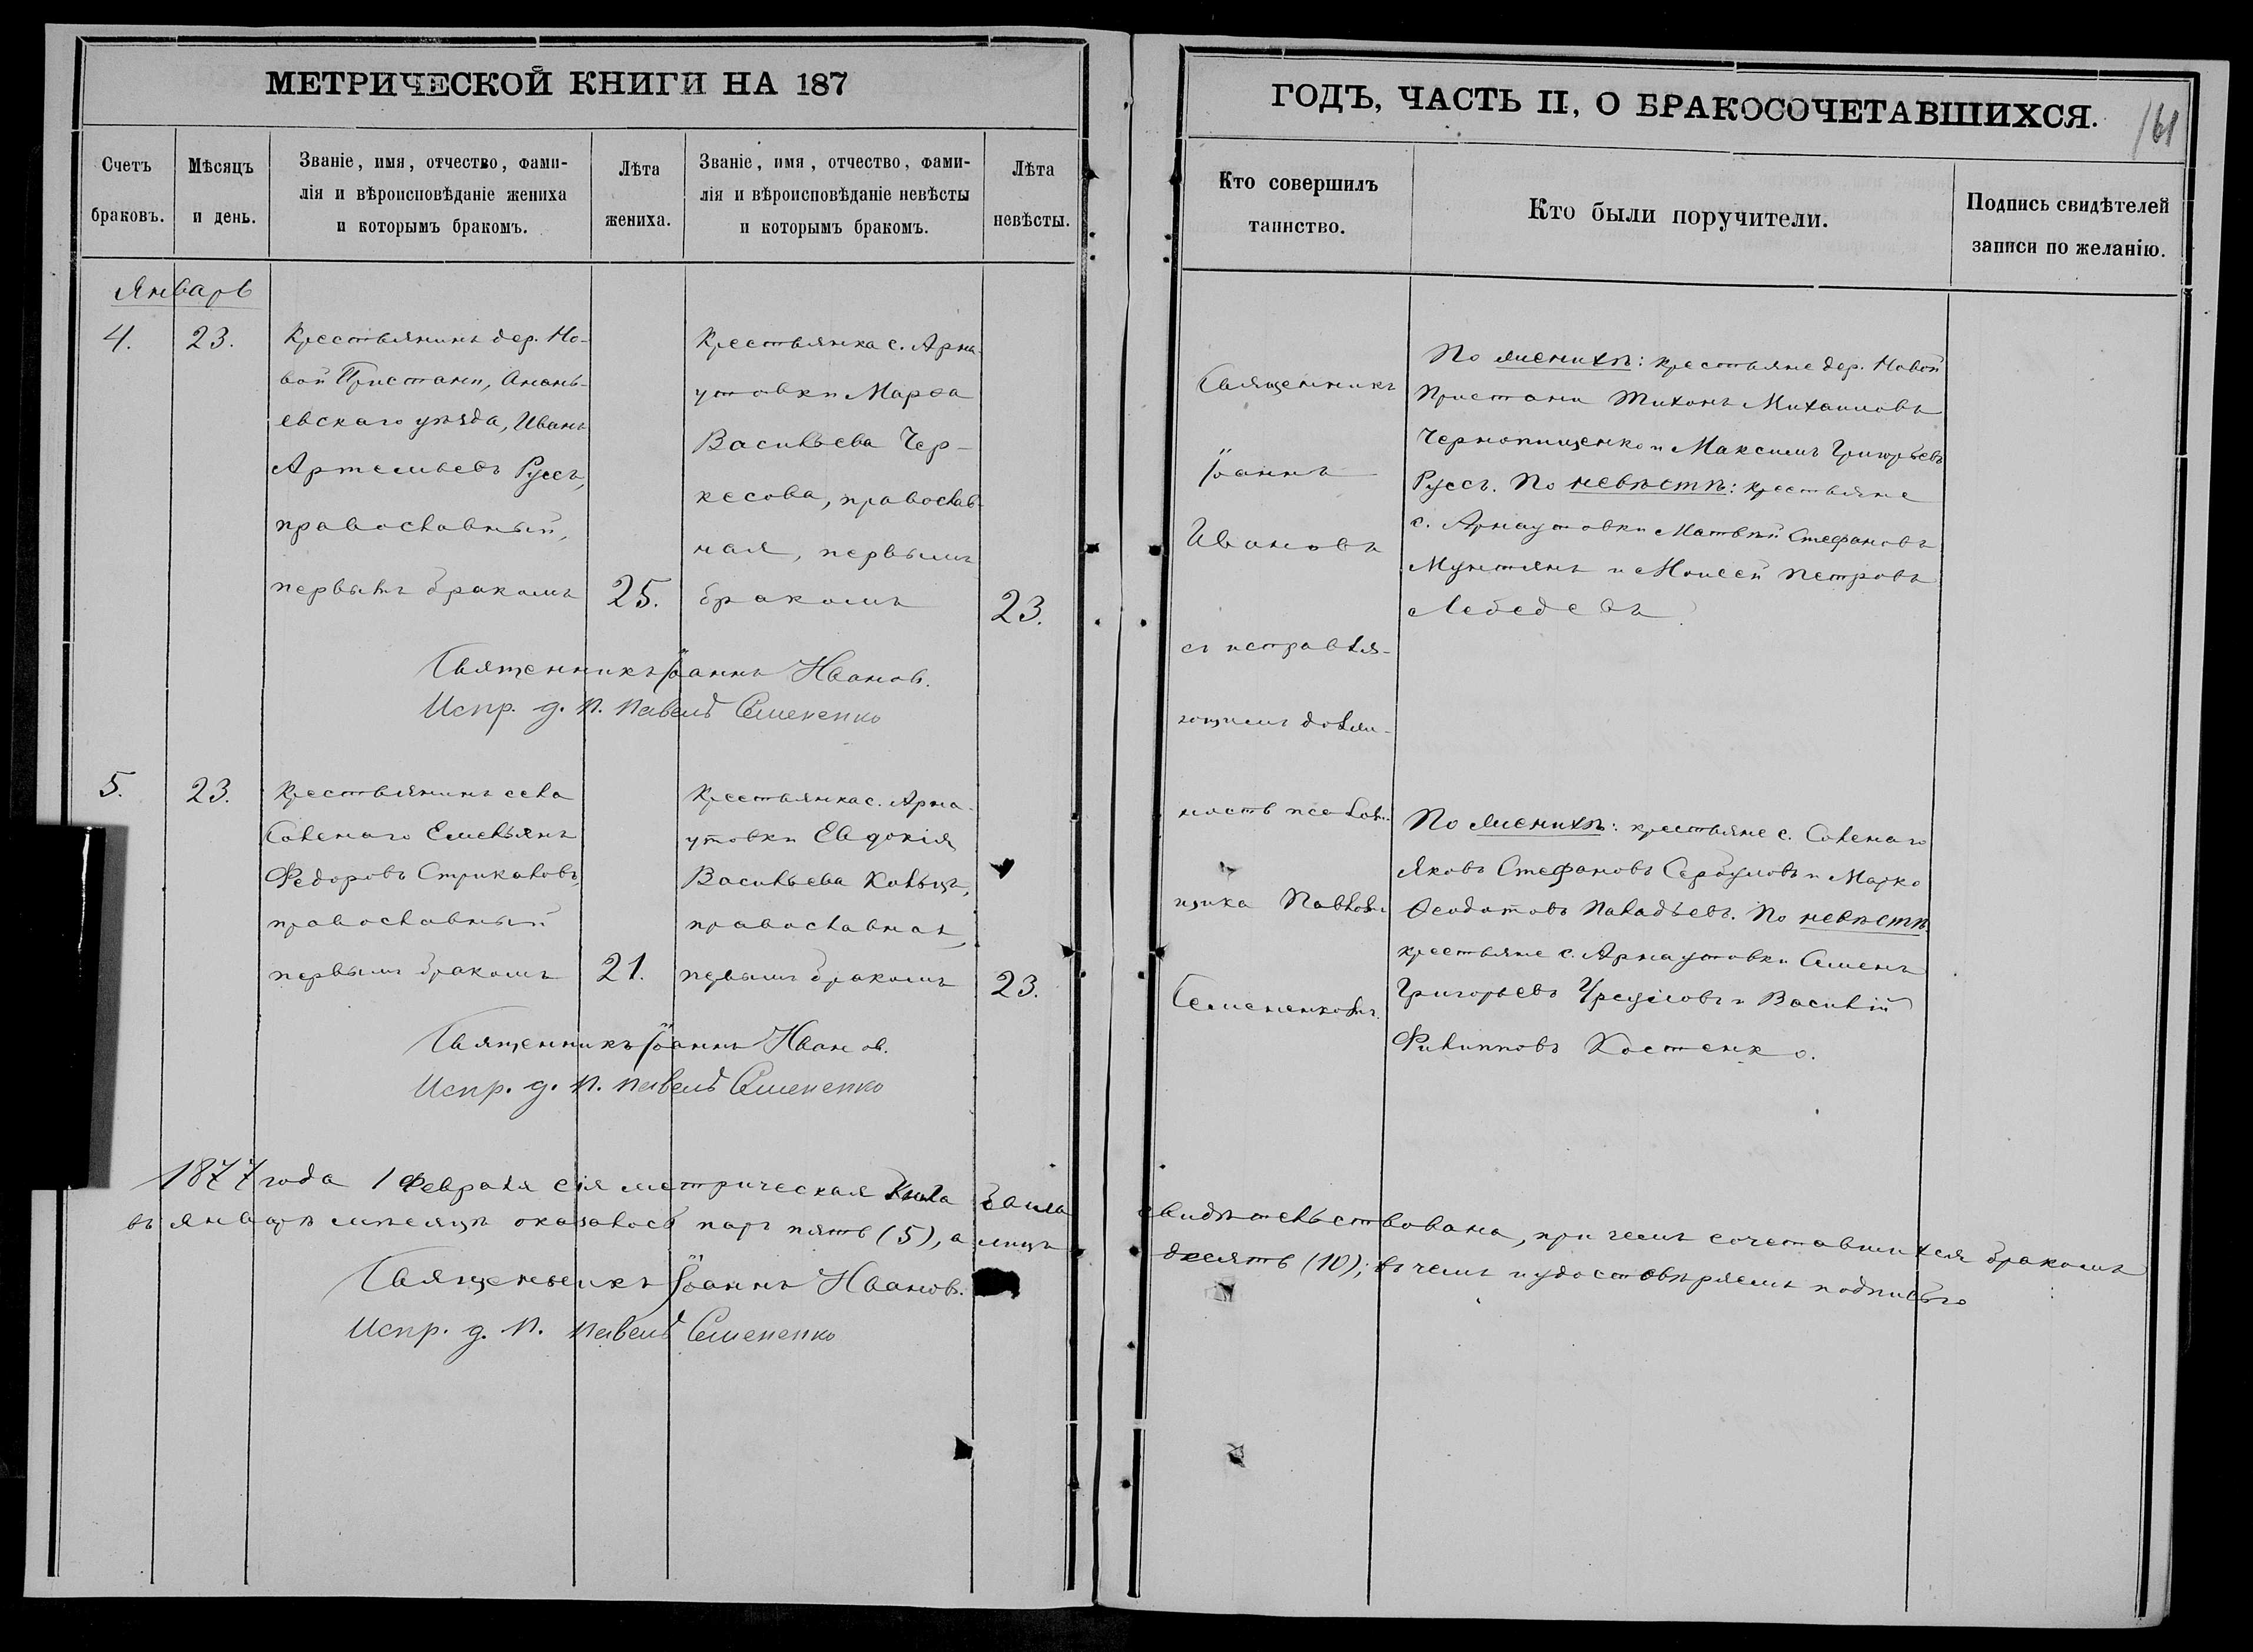 МЕТРИЧЕСКОЙ КНИГИ НА 187
Счетъ браковъ.
Мѣсяцъ и день.
Званіе, имя, отчество, фами-
лія и вѣроисповѣданіе жениха
и которымъ бракомъ.
Лѣта жениха.
Званіе, имя, отчество, фами-
лія и вѣроисповѣданіе невѣсты
и которымъ бракомъ.
Лѣта невѣсты.
Январь
4.
23.
Крестьянинъ дер. Но-
вой Пристани, Анань-
евскаго уѣзда, Иванъ
Артемьевъ Руссъ,
православный,
первымъ бракомъ
25.
Крестьянка с. Арна-
утовки Марѳа
Васильева Чер-
кесова, православ-
ная, первымъ
бракомъ
23.
Священникъ Іоаннъ Ивановъ.
Испр. д. П. Павелъ Семененко
5.
23.
Крестьянинъ села
Соленаго Емельянъ
Федоровъ Стрикаловъ,
православный
первымъ бракомъ
21.
Крестьянка с. Арна-
утовки Евдокія
Васильева Кольцъ,
православная,
первымъ бракомъ
23.
Священникъ Іоаннъ Ивановъ.
Испр. д. П. Павелъ Семененко
1877 года 1 Февраля сія метрическая книга была
въ январѣ мѣсяцѣ оказалось паръ пять (5), а лицъ
Священникъ Іоаннъ Ивановъ.
Испр. д. П. Павелъ Семененко
ГОДЪ, ЧАСТЬ II, О БРАКОСОЧЕТАВШИХСЯ.
161
Кто совершилъ
таинство.
Кто были поручители.
Подпись свидѣтелей
записи по желанію.
Священникъ
Іоаннъ
Ивановъ
съ исправля-
ющимъ долж-
ность псалом-
щика Павломъ
Семененкомъ.
По женихѣ: крестьяне дер. Новой
Пристани Тихонъ Михаиловъ
Чернопищенко и Максимъ Григорьевъ
Руссъ. По невѣстѣ: крестьяне
с. Арнаутовки Матвѣй Стефановъ
Мунтянъ и Моисей Петровъ
Лебедевъ
По женихѣ: крестьяне с. Соленаго
Яковъ Стефановъ Сербуловъ и Марко
Ѳеодотовъ Паладьевъ. По невѣстѣ
крестьяне с. Арнаутовки Семенъ
Григорьевъ и Василій
Филипповъ Костенко.
свидѣтельствована, при чемъ сочетавшихся бракомъ
десять (10); въ чемъ и удостовѣряемъ подписью